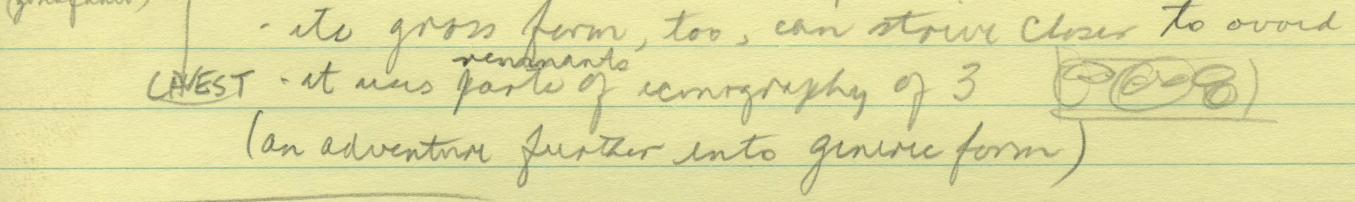 - its gross form, too, can strive closer to avoid
remnants
CHEST - it uses parts of iconography of 3
(an adventure further into generic form)